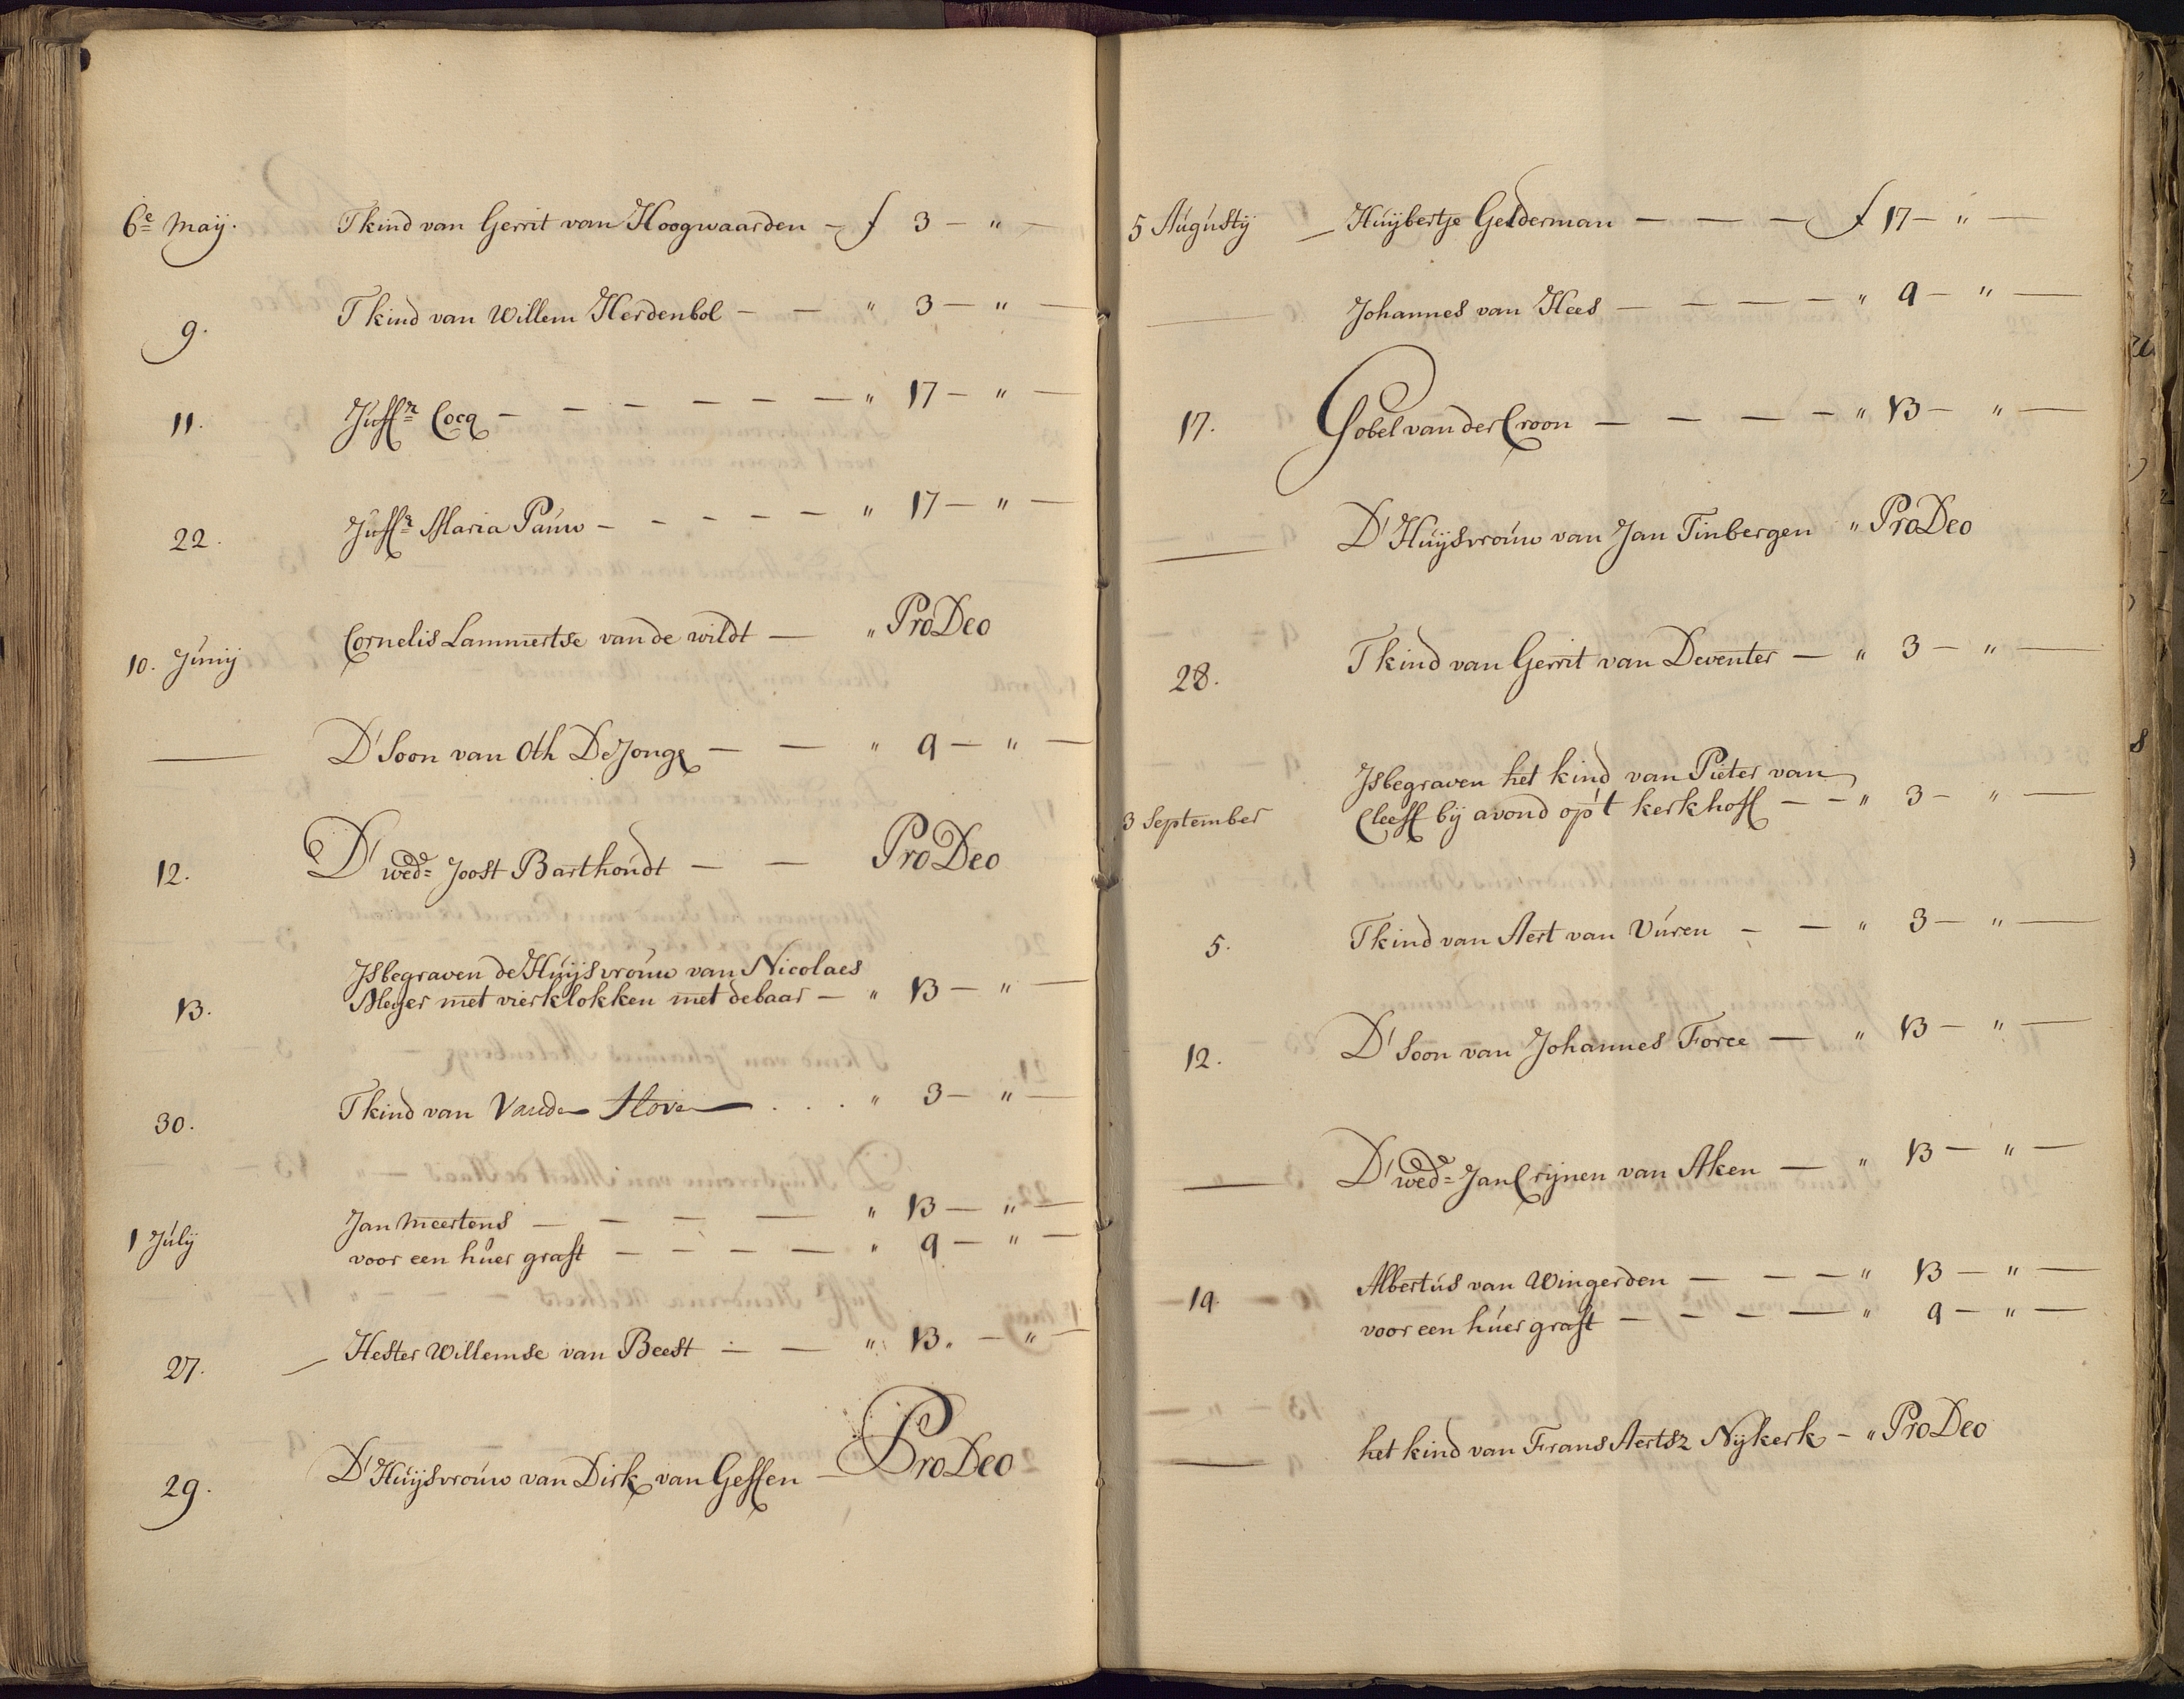 6e Maij. Tkind van Gerrit van Hoogwaarden - f 3 - " -
9. Tkind van Willem Herdenbol - - " 3 - " -
11. Juffr Cocq - - - - - - " 17 - " -
22. Juffr Maria Pauw - - - - - " 17 - " -
10. Junij Cornelis Lammertse van de wildt - " ProDeo
— D'Soon van Oth DeJonge - - " 9 - " -
12. D' wed= Joost Barthoudt - - ProDeo
13. Jsbegraven de Huijsvrouw van Nicolaes
Meyer met vierklokken met debaar - " 13 - " -
30. Tkind van Vanden Hoven . . . " 3 - " -
1 Julij Jan Meertens - - - - " 13 - " -
voor een huer graft - - - - " 9 - " -
27. Hester Willemse van Beest - - " 13. - " -
29. D'Huijsvrouw van Dirk van Gessen - ProDeo
5 Augustij Huijbertje Gelderman - - - f 17 - " -
— Johannes van Hees - - - - " 9 - " -
17. Gobel van der Croon - - - - " 13 - " -
— D'Huijsvrouw van Jan Tinbergen " ProDeo
28. Tkind van Gerrit van Deventer - " 3 - " -
3 September Jsbegraven het kind van Pieter van
Cleeff bij avond op't kerkhoff - - " 3 - " -
5. Tkind van Aert van Vúren - - " 3 - " -
12. D'Soon van Johannes Force - " 13 - " -
— D' wed= Jan Crijnen van Aken - " 13 - " -
19. Albertus van Wingerden - - - " 13 - " -
voor een húer graft - - - - " 9 - " -
— het kind van Frans Aertsz Nijkerk - " ProDeo